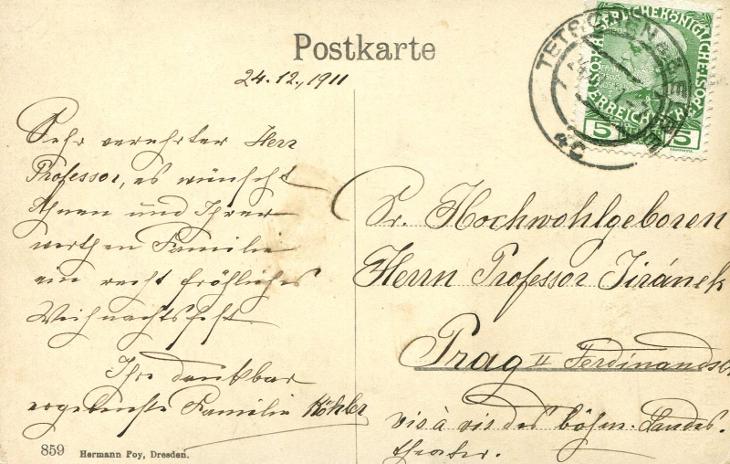 Postkarte
24.12., 1911
Sehr verehrter Herr
Professor, es wünscht
Ihnen und Ihrer
werthen Familie
ein recht fröhliches
Weihnachtsfest
Ihre dankbar
ergebenste Familie Köhler
Sr. Hochwohlgeboren
Herrn Professor Jiránek
Prag II Ferdinandstr
vis à vis des böhm. Landes-
theater.
TETSCHEN
4c
5 5
859 Hermann Poy, Dresden.